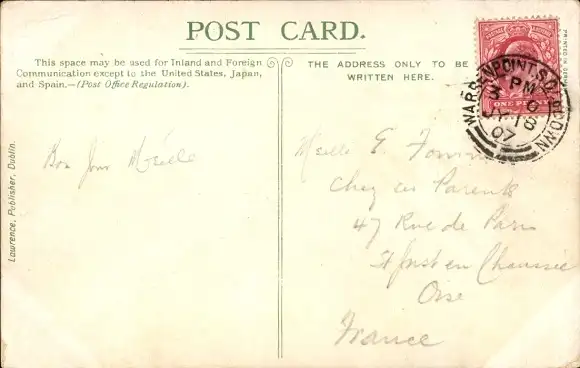 POST CARD.
This space may be used for Inland and Foreign
Communication except to the United States, Japan,
and Spain.—(Post Office Regulation).
THE ADDRESS ONLY TO BE
WRITTEN HERE.
PRINTED IN
POSTAGE REVENUE
ONE PENNY
WARRENPOINT. S.O. Co. DOWN
PM
18
07
Lawrence, Publisher, Dublin.
Bon Jour Mselle
Mselle E.
Chez ses Parents
47 Rue de Paris
St Just en Chaussée
Oise
France